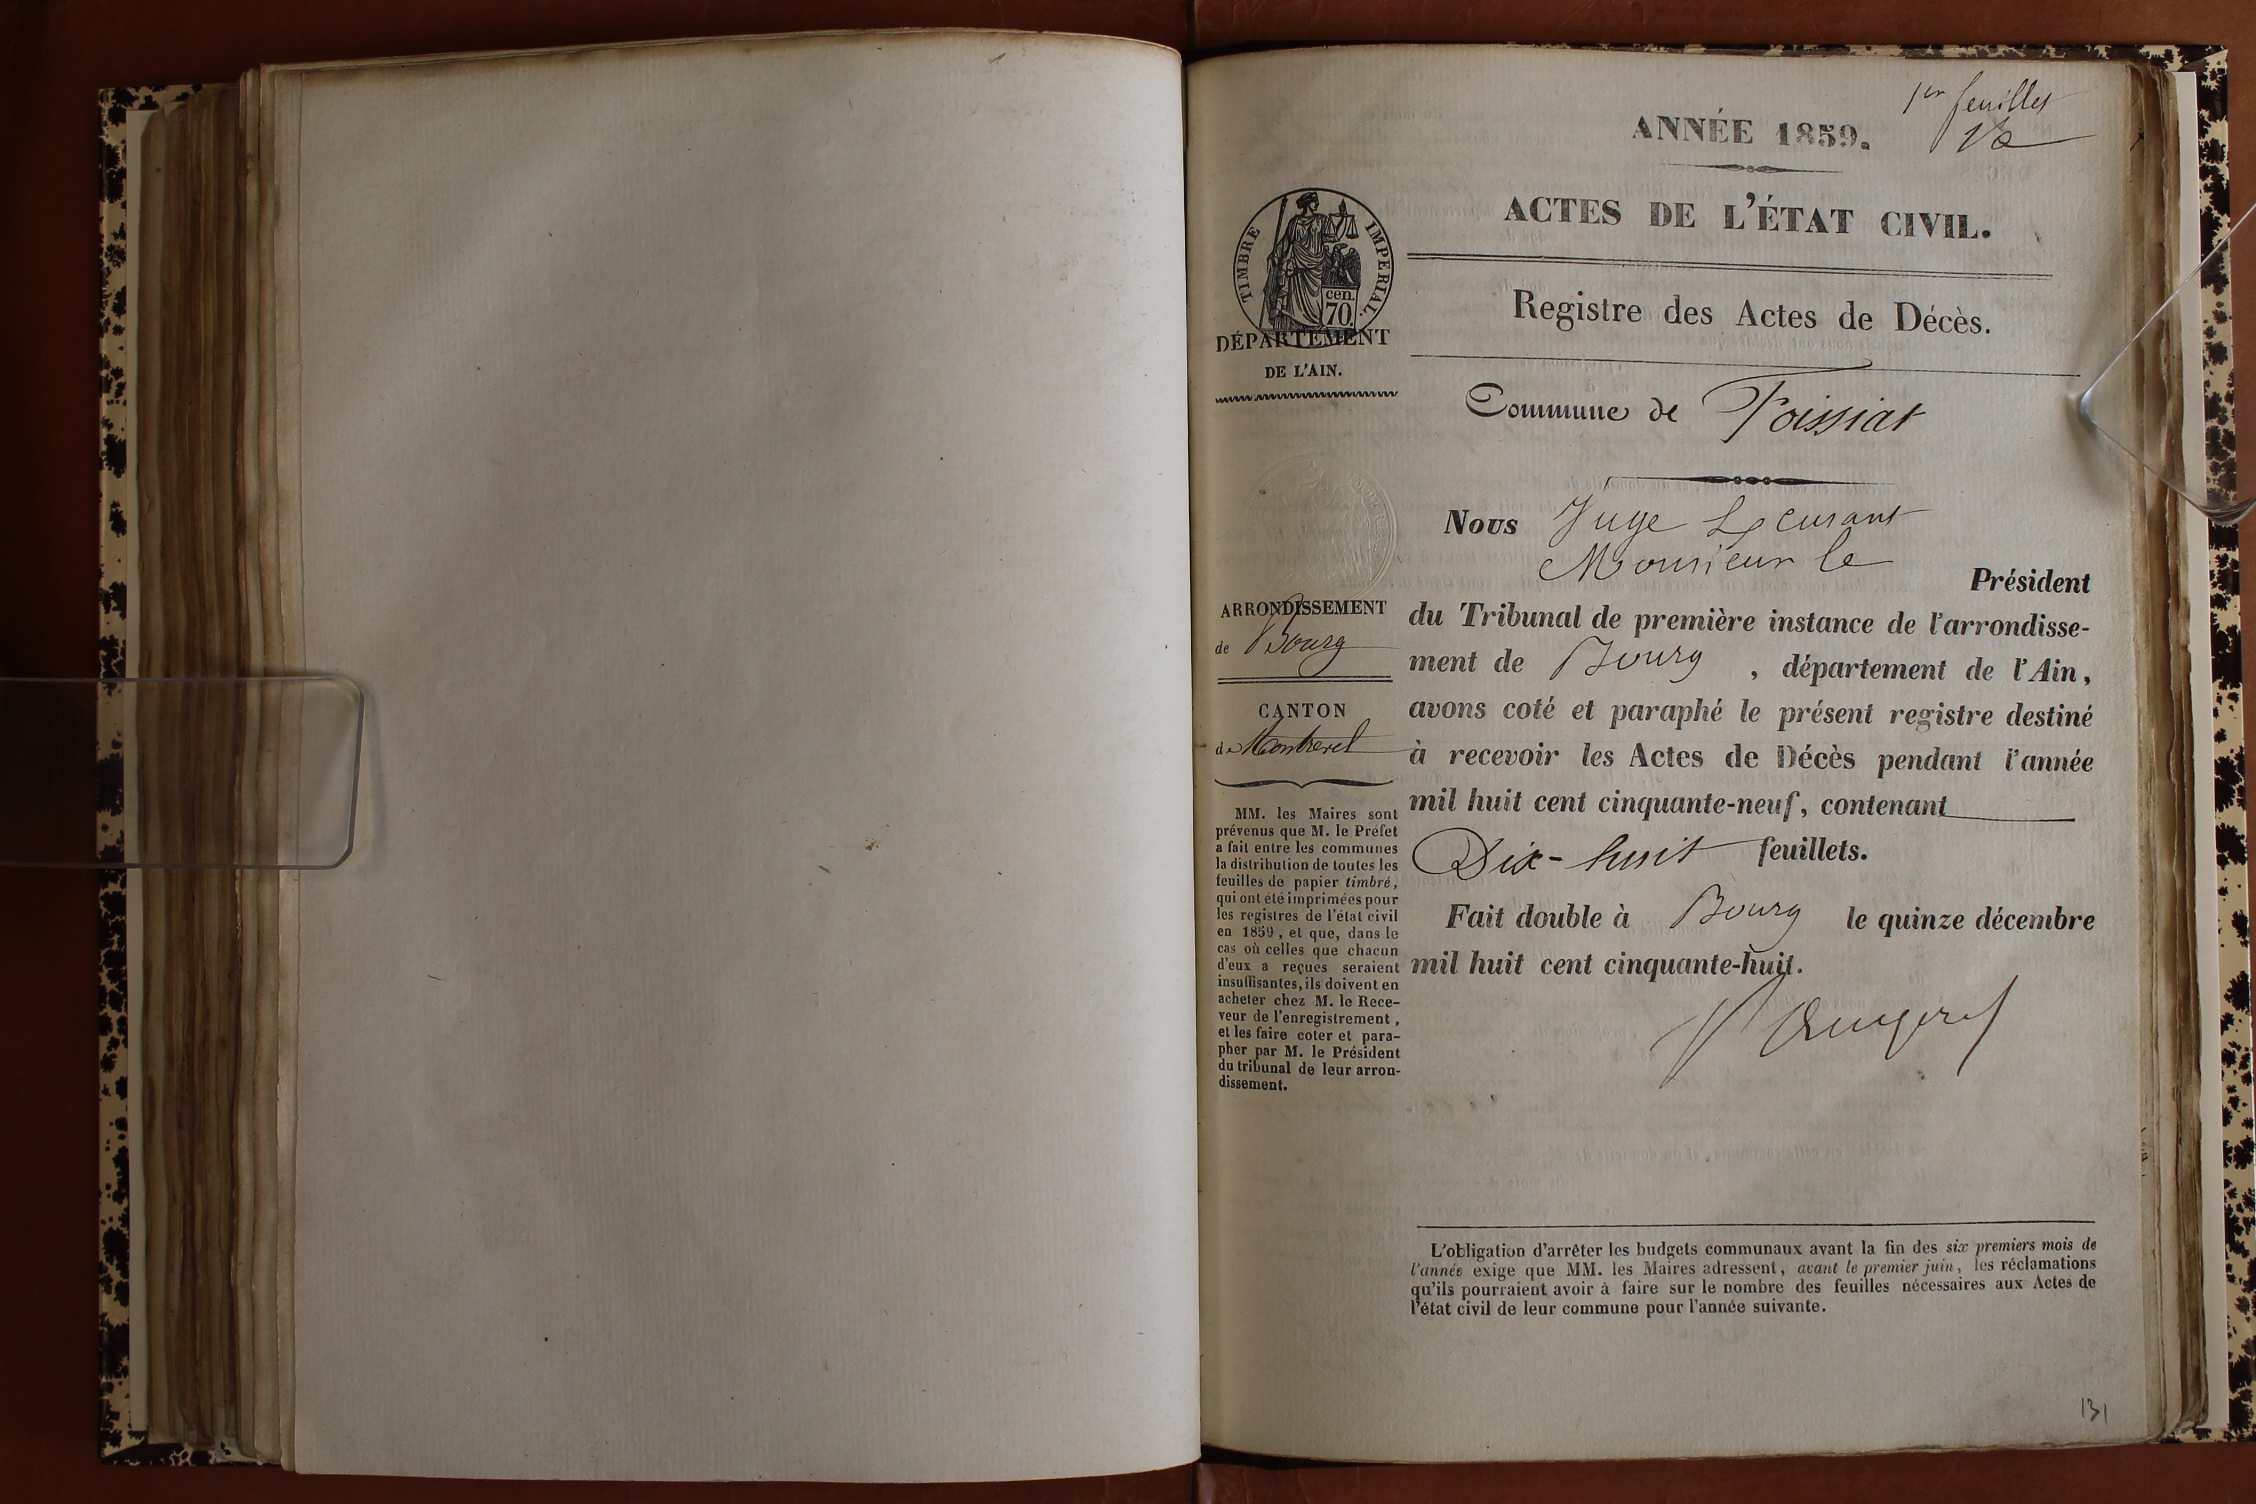 1er feuillet
ANNÉE 1859.
ACTES DE L'ÉTAT CIVIL.
TIMBRE IMPERIAL.
cen.
70.
DÉPARTEMENT
DE L'AIN.
Registre des Actes de Décès.
Commune de Foissiat
Nous Juge
Monsieur le
Président
du Tribunal de première instance de l'arrondisse-
ment de Bourg, département de l'Ain,
avons coté et paraphé le présent registre destiné
à recevoir les Actes de Décès pendant l'année
mil huit cent cinquante-neuf, contenant
Dix-huit feuillets.
Fait double à Bourg le quinze décembre
mil huit cent cinquante-huit.
ARRONDISSEMENT
de Bourg
CANTON
de Montrevel
MM. les Maires sont
prévenus que M. le Préfet
a fait entre les communes
la distribution de toutes les
feuilles de papier timbré,
qui ont été imprimées pour
les registres de l'état civil
en 1859, et que, dans le
cas où celles que chacun
d'eux a reçues seraient
insuffisantes, ils doivent en
acheter chez M. le Rece-
veur de l'enregistrement,
et les faire coter et para-
pher par M. le Président
du tribunal de leur arron-
dissement.
L'obligation d'arrêter les budgets communaux avant la fin des six premiers mois de
l'année exige que MM. les Maires adressent, avant le premier juin, les réclamations
qu'ils pourraient avoir à faire sur le nombre des feuilles nécessaires aux Actes de
l'état civil de leur commune pour l'année suivante.
131